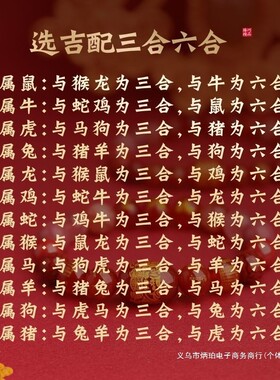 选吉配三合六合
属鼠:与猴龙为三合,与牛为六合
属牛:与蛇鸡为三合,与鼠为六合
属虎:与马狗为三合,与猪为六合
属兔:与猪羊为三合,与狗为六合
属龙:与猴鼠为三合,与鸡为六合
属鸡:与蛇牛为三合,与龙为六合
属蛇:与鸡牛为三合,与猴为六合
属猴:与鼠龙为三合,与蛇为六合
属马:与狗虎为三合,与羊为六合
属羊:与猪兔为三合,与马为六合
属狗:与虎马为三合,与兔为六合
属猪:与兔羊为三合,与虎为六合
义乌市炳珀电子商务商行(个体